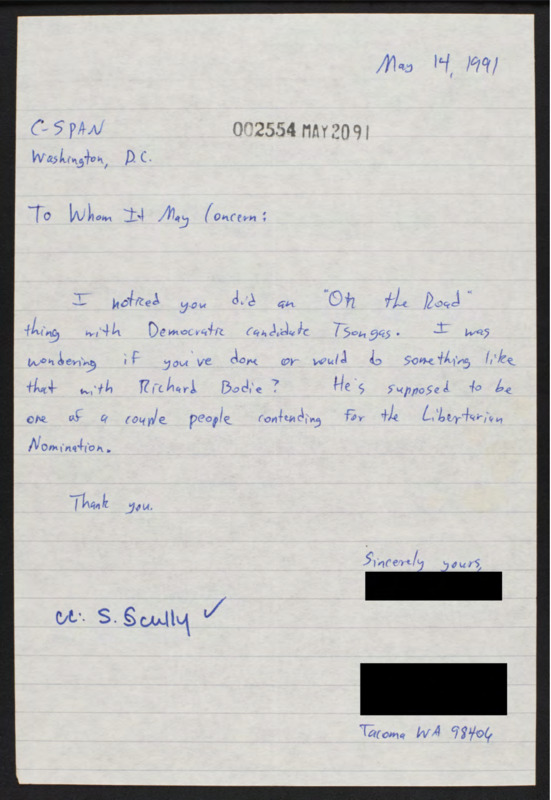 May 14, 1991
C-SPAN
002554 MAY 20 91
Washington, D.C.
To Whom It May Concern:
I noticed you did an "On the Road"
thing with Democratic candidate Tsongas. I was
wondering if you've done or would do something like
that with Richard Bodie? He's supposed to be
one of a couple people contending for the Libertarian
Nomination.
Thank you.
Sincerely yours,
cc: S. Scully ✓
Tacoma WA 98406